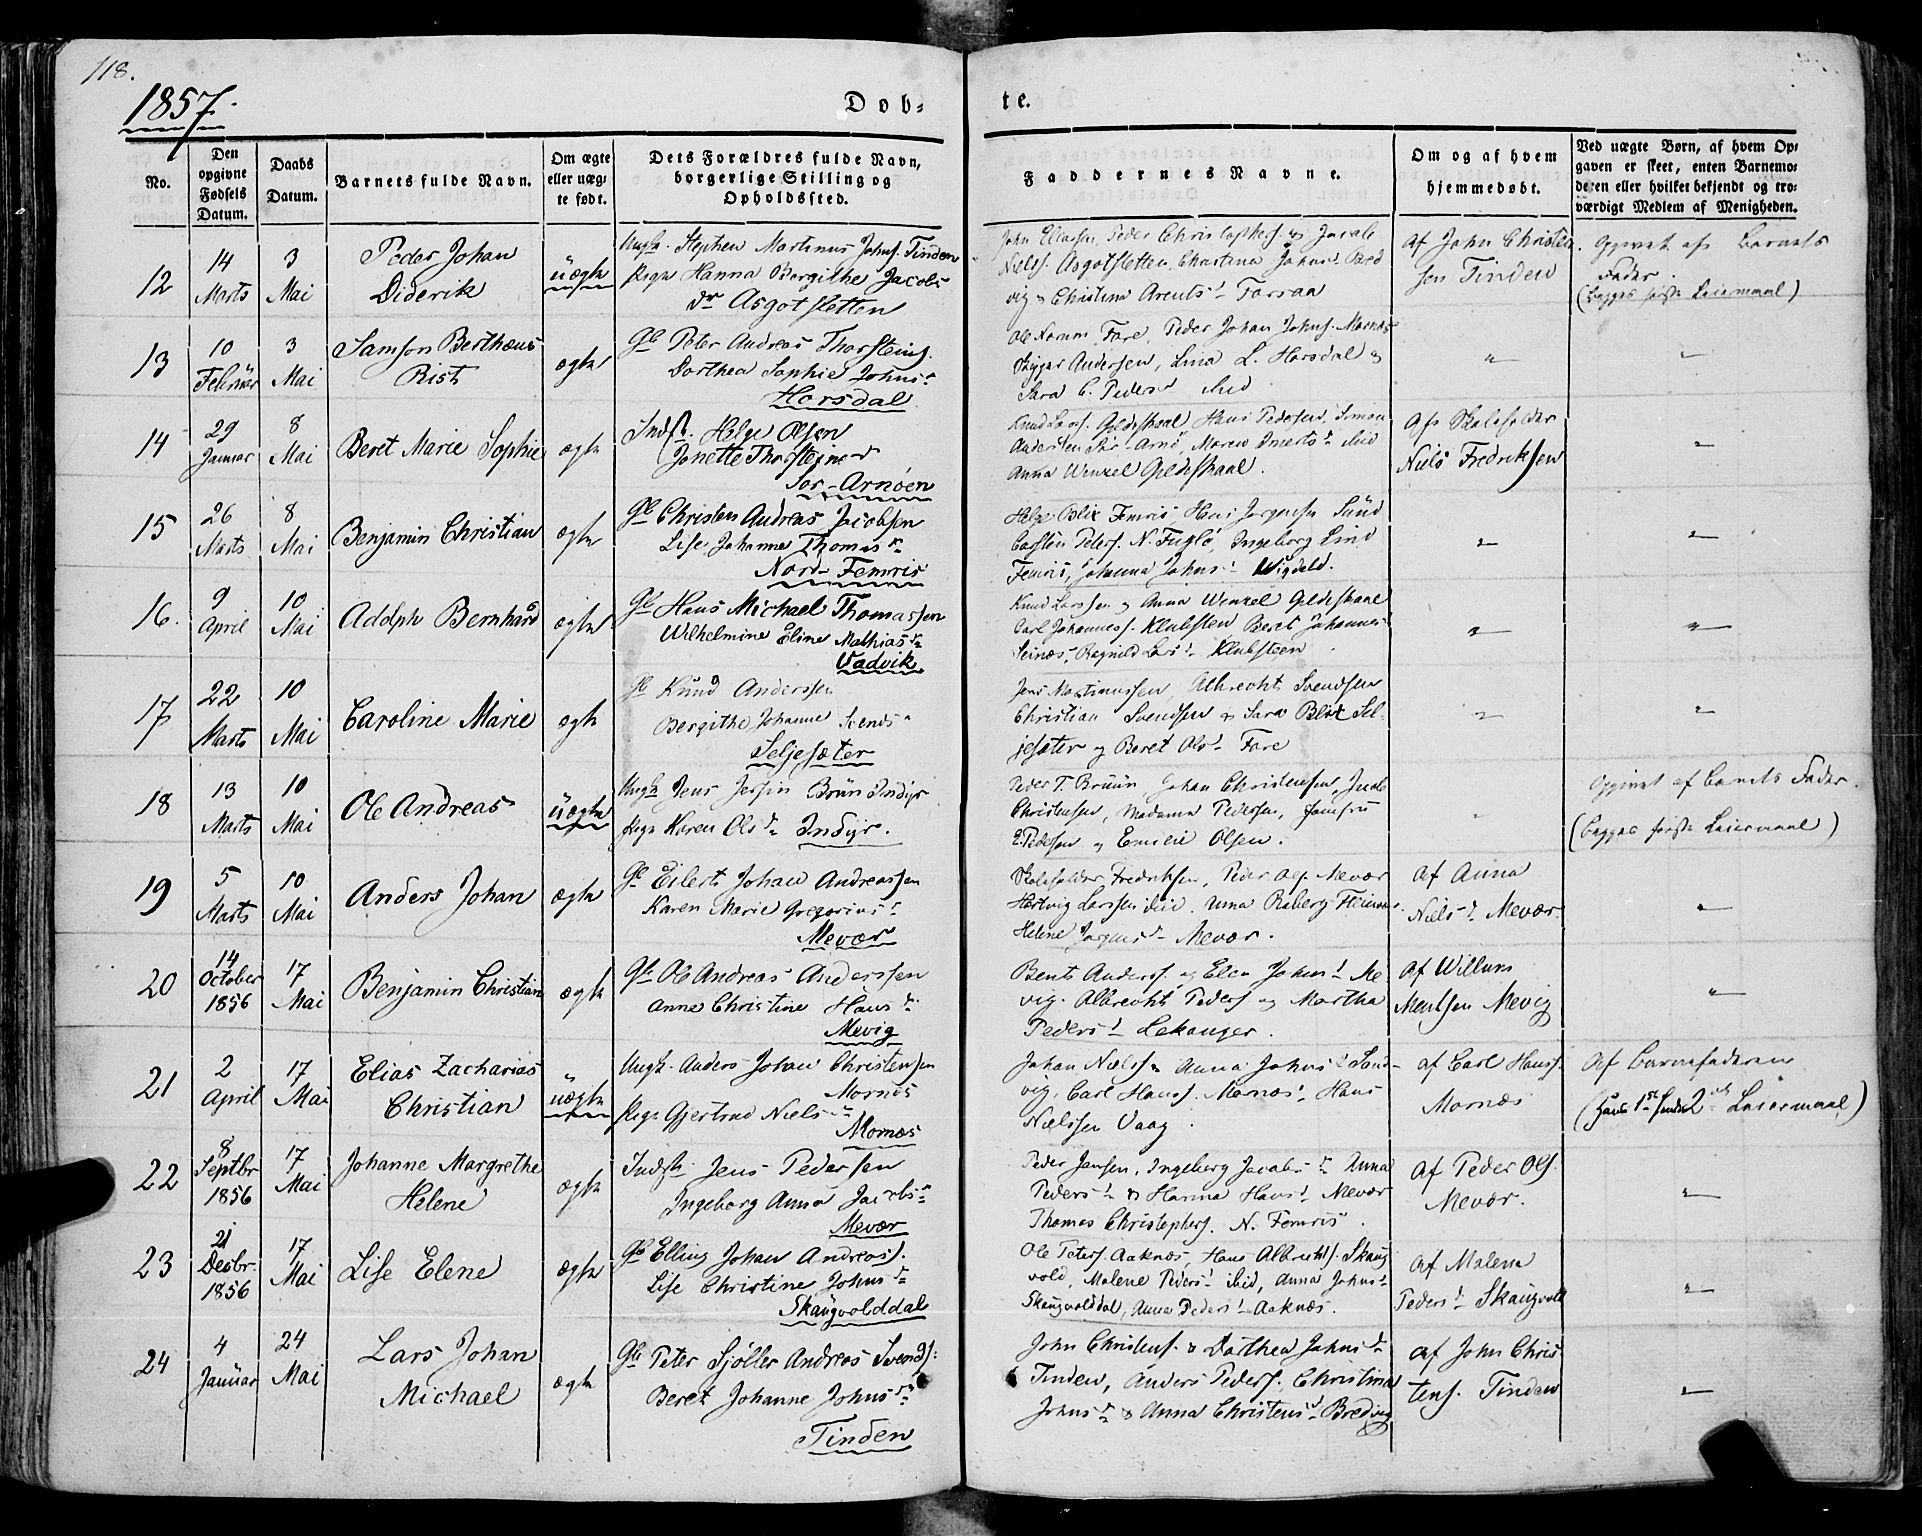 118.
1857.
Døb-
te.
No.
Den opgivne Fødsels Datum.
Daabs Datum.
Barnets fulde Navn.
Om ægte eller uægte født.
Dets Forældres fulde Navn, borgerlige Stilling og Opholdssted.
Faddernes Navne.
Om og af hvem hjemmedøbt.
Ved uægte Børn, af hvem Opgaven er skeet, enten Barnemoderen eller hvilket bekjendt og troværdigt Medlem af Menigheden.
12
14 Marts
3 Mai
Peder Johan
Diderik
üægte
Ungk. Stephen Martinus Johns. Tinden
Pige Hanna Bergithe Jacobs
dr Asgotsletten
John Eliassen, Peder Christophers. & Jacob
Niels. Asgotsletten, Christina Johns Bred
vig & Christina Arents Torraa
Af John Christen
sen Tinden
Opgivet af Barnets
Fader
(begges første Leiermaal)
13
10 Februar
3 Mai
Samson Berthæus
Rist
ægte
Gb Peter Andreas Thorsteins.
Dorthea Sophie Johns
Horsdal
Ole Fore, Peder Johan Johns. Mornæs
Andersen, Lina L. Horsdal &
Sara C. Peders ibid
"
"
14
29 Januar
8 Mai
Beret Marie Sophie
ægte
Indst. Helge Olsen
Jonette Thorsteins
Sør-Arnøen
Knud Lars. Gildeskaal Hans Pedersen, Simon
Andersen Sør-Arnø, Maren ibid
Anna Wenzel Gildeskaal.
Af Skoleholder
Niels Fredriksen
"
15
26 Marts
8 Mai
Benjamin Christian
ægte
Gb Christen Andreas Jacobsen
Lise Johanne Thomas
Nord-Femris
Helge Blix Femris Hans Jørgensen Sund
Carsten Peders. N. Fuglø, Ingeborg
Femris, Johanna Johns Wigdal.
"
"
16.
9 April
10 Mai
Adolph Bernhard
ægte
Gb Hans Michael Thomassen
Wilhelmine Eline Mathias
Vadvik
Knud Larssen & Anna Wenzel Gildeskaal
Carl Johanness. Klubsten Beret Johannes
Seinæs, Ragnild Lars Klubsteen
"
"
17
22 Marts
10 Mai
Caroline Marie
ægte
Gb Knud Anderssen
Bergithe Johanne Svends
Seljesæter
Jens Martinussen, Albrecht Svendsen
Christian Svendsen & Sara Blix Sel-
jesæter og Beret Ols Fore
"
"
18
13 Marts
10 Mai
Ole Andreas
üægte
Ungk Jens Brün Indyr
Pige Karen Ols Indyr.
Peder T. Bruun, Johan Christensen, Jacob
Christensen, Madame Pedersen, Jomfru
E. Pedersen & Emilie Olsen.
"
Opgivet af Barnets Fader.
(begges første Leiermaal)
19
5 Marts
10 Mai
Anders Johan
ægte
Gb Eilert Johan Andreassen
Karen Marie Gregorius
Mevær
Skoleholder Fredriksen, Peder Ols. Mevær
Hartvig Larssen ibid. Anna
Helene Jørgens Mevær.
Af Anna
Niels Mevær.
"
20
14 October 1856
17 Mai
Benjamin Christian
ægte
Gb Ole Andreas Anderssen
Anne Christine Hans
Mevig
Bent Anders. og Elen Johns Me
vig. Albrecht Peders & Martha
Peders Lekanger.
Af Willum
Mentsen Mevig
"
21
2 April
17 Mai
Elias Zacharias
Christian
üægte
Ungk. Anders Johan Christensen
Mornæs
Pige Gjertrud Niels
Mornæs
Johan Nielss & Anna Johns Sand-
vig, Carl Hans. Mornæs, Hans
Nielssen Vaag.
af Carl Hans.
Mornæs
Af Barnefaderen
(hans 1ste hendes 2det Leiermaal)
22
8 Septbr 1856
17 Mai
Johanne Margrethe
Helene
ægte
Indst. Jens Pederssen
Ingeborg Anna Jacobs
Mevær
Peder Jensen, Ingeborg Jacobs Anna
Peders & Hanna Hans Mevær
Thomas Christophers. N. Femris.
Af Peder Ols.
Mevær.
"
23
21 Decbr. 1856
17 Mai
Lise Elene
ægte
Gb Elling Johan Andreas.
Lise Christine Johns
Skaugvolddal
Ole Peters. Aaknæs, Hans Albrechts. Skaug
vold, Malene Peders ibid, Anna Johns
Skaugvolddal, Anna Peders Aaknæs.
Af Malena
Peders Skaugvold
"
24
4 Januar
24 Mai
Lars Johan
Michael
ægte
Gb Peter Sjøller Andreas Svends:
Beret Johanne Johns
Tinden
John Christens. & Dorthea Johns
Tinden, Anders Peders. Christina
Johns & Anna Christens Bredvig
Af John Chris
tens. Tinden
"